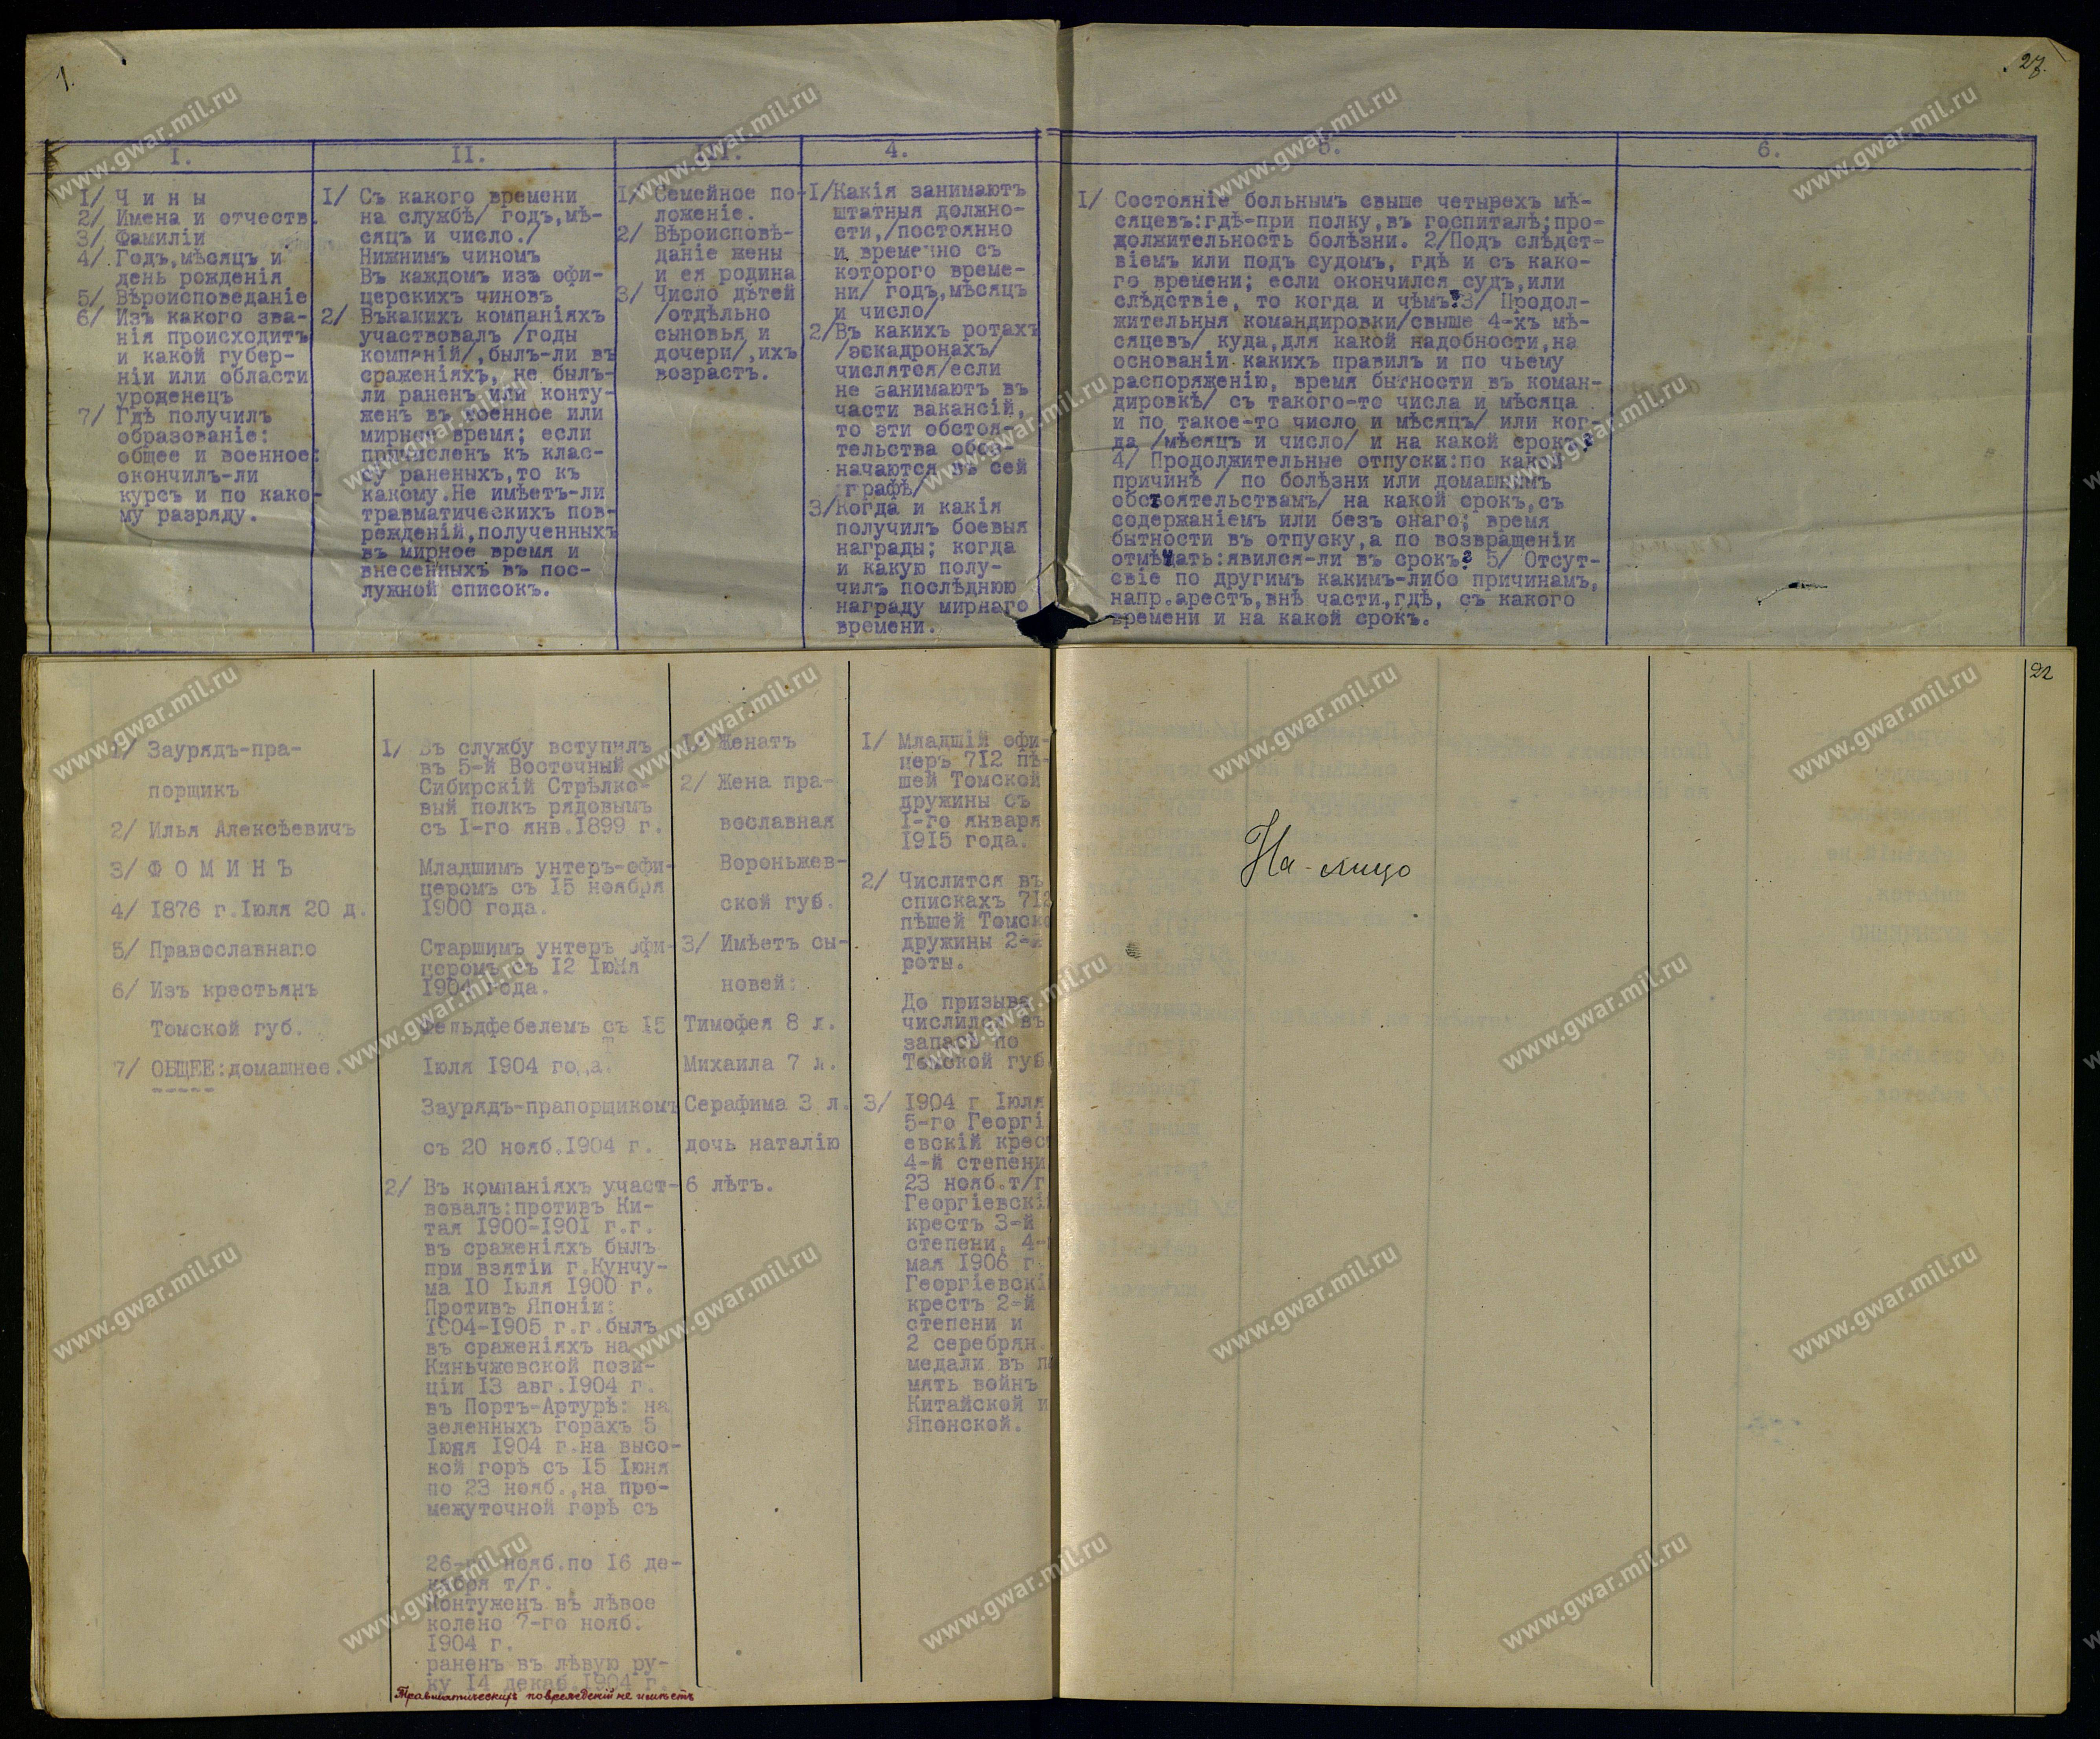 1.
27.
I.
II.
III.
4.
5.
6.
1/ Ч и н ы
2/ Имена и отчеств.
3/ Фамиліи
4/ Годъ,мѣсяцъ и
день рожденія
5/ Вѣроисповеданіе
6/ Изъ какого зва-
нія происходитъ
и какой губер-
ніи или области
уроденецъ
7/ Гдѣ получилъ
образованіе:
общее и военное:
окончилъ-ли
курсъ и по како-
му разряду.
I/ Съ какого времени
на службѣ/ годъ,мѣ-
сяцъ и число./
Нижнимъ чиномъ
Въ каждомъ изъ офи-
церскихъ чиновъ
2/ Въкакихъ компаніяхъ
участвовалъ /годы
компаній/,былъ-ли въ
сраженіяхъ, не былъ-
ли раненъ или конту-
женъ въ военное или
мирное время; если
причисленъ къ клас-
су раненыхъ,то къ
какому.Не имѣетъ-ли
травматическихъ пов-
режденій,полученныхъ
въ мирное время и
внесенныхъ въ пос-
лужной списокъ.
1/ Семейное по-
ложеніе.
2/ Вѣроисповѣ-
даніе жены
и ея родина
3/ Число дѣтей
/отдѣльно
сыновья и
дочери/,ихъ
возрастъ.
I/Какія занимаютъ
штатныя должно-
сти,/постоянно
и временно съ
которого време-
ни/ годъ,мѣсяцъ
и число/
2/Въ какихъ ротахъ
/эскадронахъ/
числятся/если
не занимаютъ въ
части вакансій,
то эти обстоя-
тельства обоз-
начаются въ сей
графѣ/
3/Когда и какія
получилъ боевыя
награды; когда
и какую полу-
чилъ послѣднюю
награду мирнаго
времени.
I/ Состояніе больнымъ свыше четырехъ мѣ-
сяцевъ:гдѣ-при полку,въ госпиталѣ;про-
должительность болѣзни. 2/Подъ слѣдст-
віемъ или подъ судомъ, гдѣ и съ како-
го времени; если окончился судъ,или
слѣдствіе, то когда и чѣмъ?3/ Продол-
жительныя командировки/свыше 4-хъ мѣ-
сяцевъ/ куда,для какой надобности,на
основаніи какихъ правилъ и по чьему
распоряженію, время бытности въ коман-
дировкѣ/ съ такого-то числа и мѣсяца
и по такое-то число и мѣсяцъ/ или ког-
да /мѣсяцъ и число/ и на какой срокъ?
4/ Продолжительные отпуски:по какой
причинѣ / по болѣзни или домашнимъ
обстоятельствамъ/ на какой срокъ,съ
содержаніемъ или безъ онаго; время
бытности въ отпуску,а по возвращеніи
отмѣчать:явился-ли въ срокъ? 5/ Отсут-
свіе по другимъ какимъ-либо причинамъ,
напр.арестъ,внѣ части,гдѣ, съ какого
времени и на какой срокъ.
22
1/ Заурядъ-пра-
порщикъ
2/ Илья Алексѣевичъ
3/ Ф О М И Н Ъ
4/ 1876 г.Іюля 20 д.
5/ Православнаго
6/ Изъ крестьянъ
Томской губ.
7/ ОБЩЕЕ:домашнее.
I/ Въ службу вступилъ
въ 5-й Восточный
Сибирскій Стрѣлко-
вый полкъ рядовымъ
съ I-го янв.1899 г.
Младшимъ унтеръ-офи-
церомъ съ 15 ноября
1900 года.
Старшимъ унтеръ офи-
церомъ съ 12 Іюня
1904 года.
Фельдфебелемъ съ 15
Іюля 1904 года.
Заурядъ-прапорщикомъ
съ 20 нояб.1904 г.
2/ Въ компаніяхъ участ-
вовалъ:противъ Ки-
тая 1900-1901 г.г.
въ сраженіяхъ былъ
при взятіи г.Кунчу-
ма 10 Іюля 1900 г.
Противъ Японіи:
1904-1905 г.г.былъ
въ сраженіяхъ на
Киньчжевской пози-
ціи 13 авг.1904 г.
въ Портъ-Артурѣ: на
зеленныхъ горахъ 5
Іюня 1904 г.на высо-
кой горѣ съ 15 Іюня
по 23 нояб.,на про-
межуточной горѣ съ
26-го нояб.по 16 де-
кабря т/г.
Контуженъ въ лѣвое
колено 7-го нояб.
1904 г.
раненъ въ лѣвую ру-
ку 14 декаб.1904 г.
Травматическихъ поврежденій не имѣетъ
1/ Женатъ
2/ Жена пра-
вославная
Вороньжев-
ской губ.
3/ Имѣетъ сы-
новей:
Тимофея 8 л.
Михаила 7 л.
Серафима 3 л.
дочь наталію
6 лѣтъ.
I/ Младшій офи-
церъ 712 пѣ-
шей Томской
дружины съ
I-го января
1915 года.
2/ Числится въ
спискахъ 712
пѣшей Томско
дружины 2-й
роты.
До призыва
числился въ
запасѣ по
Томской губ.
3/ 1904 г Іюля
5-го Георгі
евскій крест
4-й степени
23 нояб.т/г
Георгіевскі
крестъ 3-й
степени, 4-
мая 1906 г.
Георгіевскі
крестъ 2-й
степени и
2 серебрян.
медали въ па
мять войнъ
Китайской и
Японской.
На-лицо
www.gwar.mil.ru